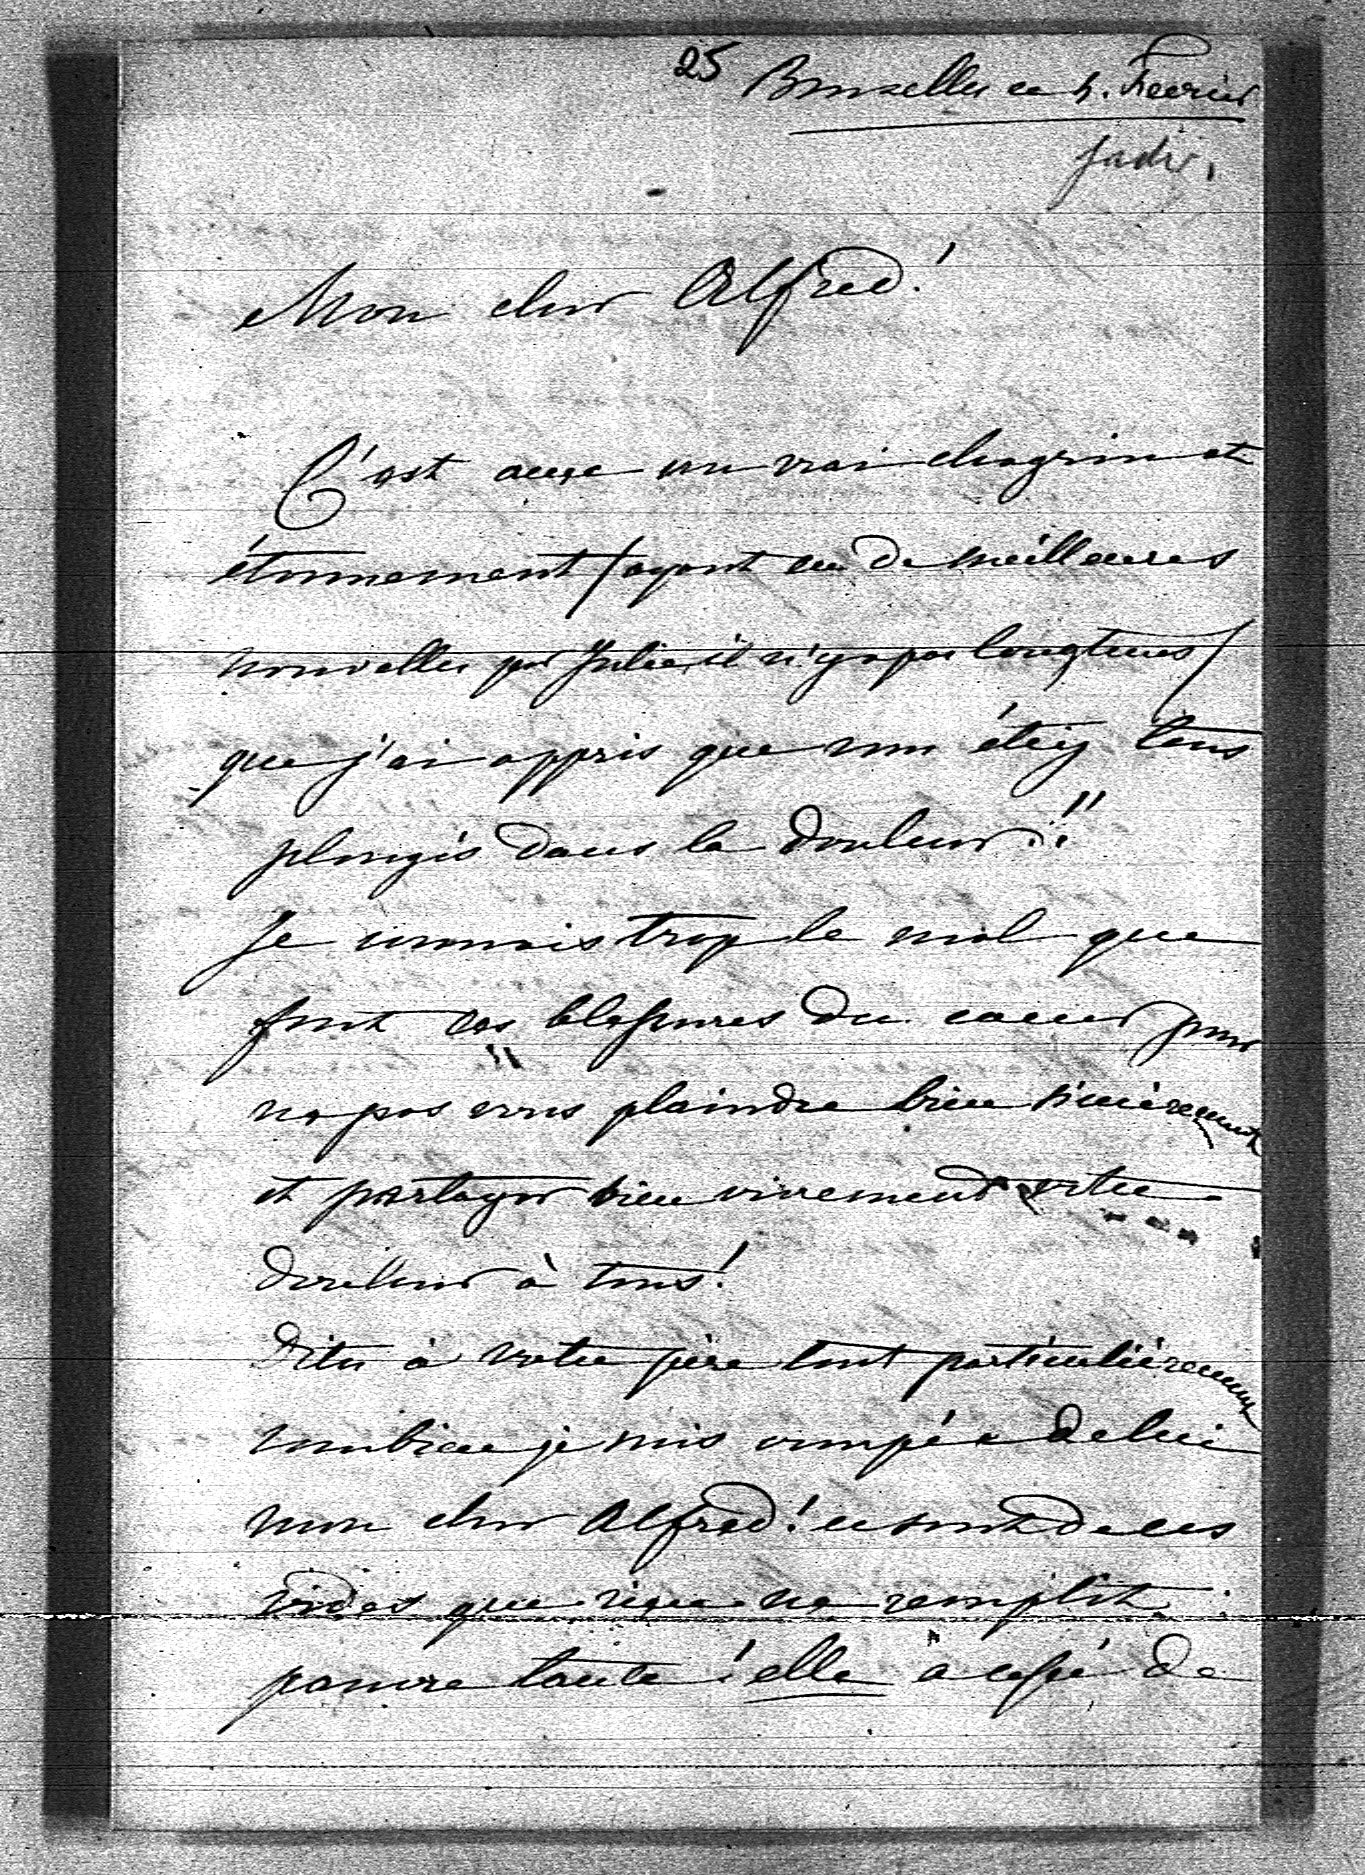 25
Bruxelles ce 4. Fevrier
Mon cher Alfred!
C'est avec un vrai chagrin et
étonnement (ayant eu de meilleures
nouvelles par Julie il n'y a pas longtems)
que j'ai appris que vous étiez tous
plongés dans la douleur!!
Je connais trop le mal que
font ces blessures du coeur pour
ne pas vous plaindre bien sincèrement
et partager bien vivement votre
douleur à tous!
Dites à votre père tout particulièrement
combien je suis occupée de lui
mon cher Alfred! ce sont de ces
vides que rien ne remplit.
pauvre tante! elle a cessé de